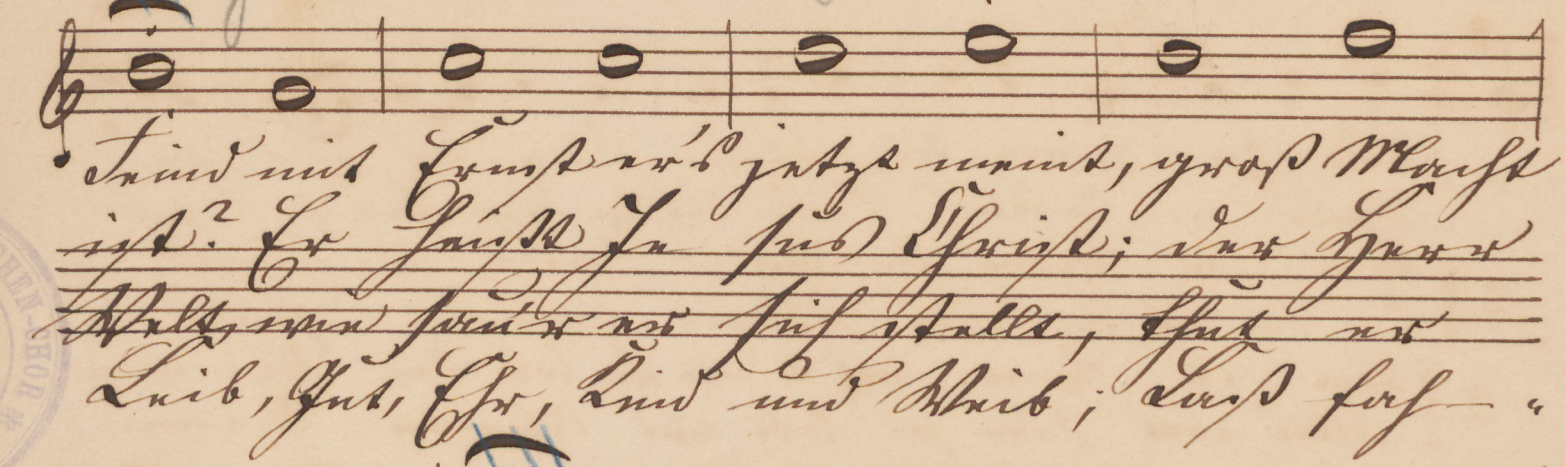 Feind mit Ernst er's jetzt meint, groß Macht
ist? Er heißt Je sus Christ; der Herr
Welt, wie sau'r er sich stellt, thut er
Leib, Gut, Ehr, Kind und Weib; Laß fah-
CHEN-CHOR *